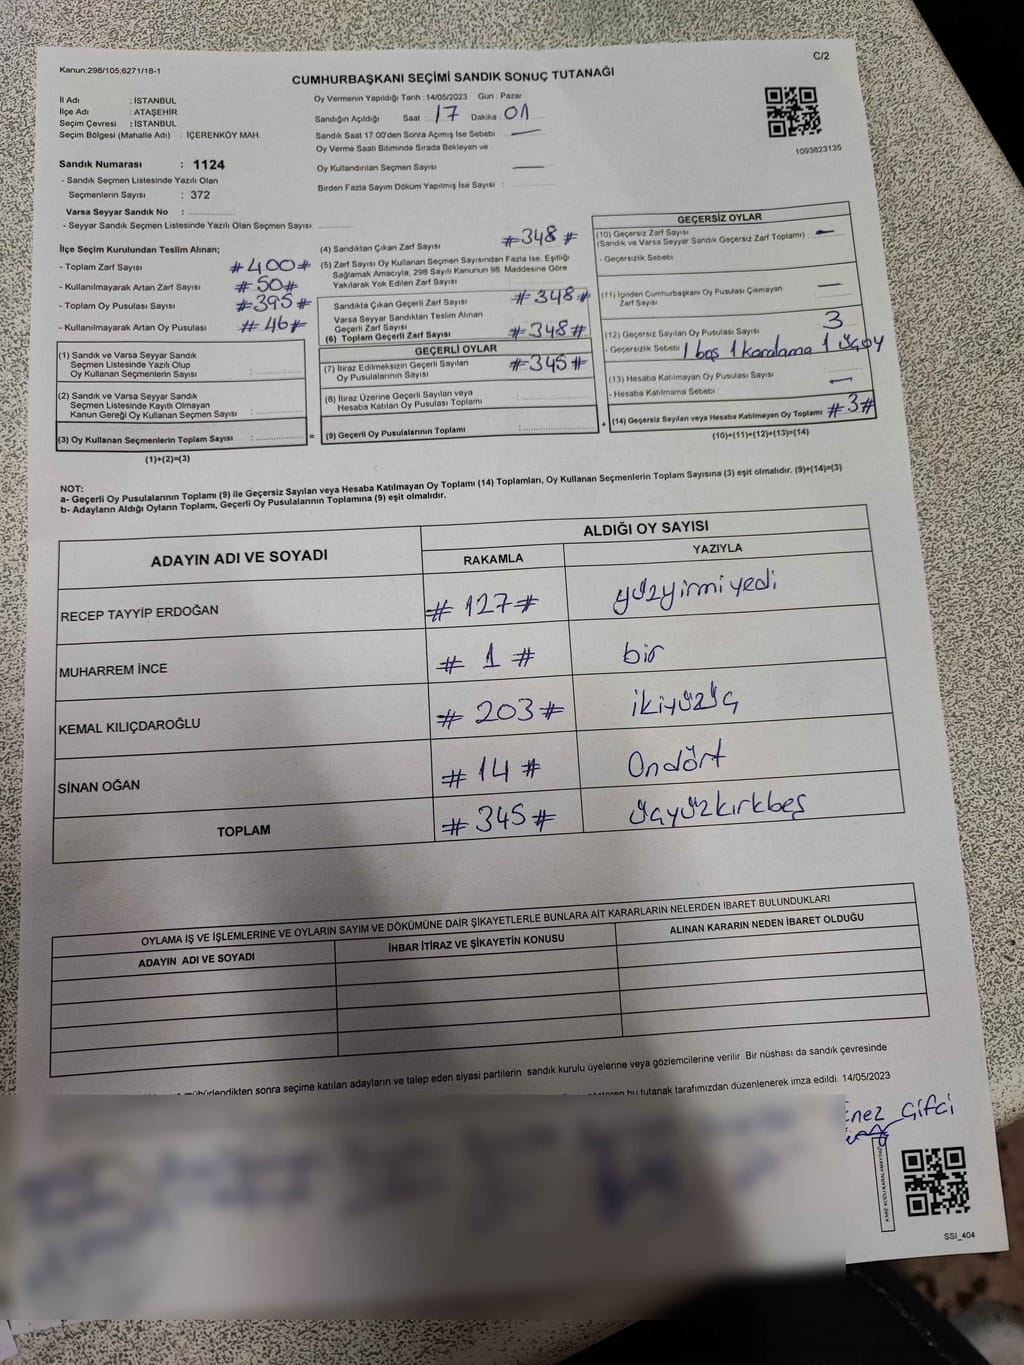 Kanun;298/105;6271/18-1
C/2
CUMHURBAŞKANI SEÇİMİ SANDIK SONUÇ TUTANAĞI
İl Adı : İSTANBUL
İlçe Adı : ATAŞEHİR
Seçim Çevresi : İSTANBUL
Seçim Bölgesi (Mahalle Adı) : İÇERENKÖY MAH.
Sandık Numarası : 1124
- Sandık Seçmen Listesinde Yazılı Olan
Seçmenlerin Sayısı : 372
Varsa Seyyar Sandık No :
- Seyyar Sandık Seçmen Listesinde Yazılı Olan Seçmen Sayısı:
Oy Vermenin Yapıldığı Tarih : 14/05/2023 Gün : Pazar
Sandığın Açıldığı Saat : 17 Dakika : 01
Sandık Saat 17:00'den Sonra Açımış İse Sebebi : —
Oy Verme Saati Bitiminde Sırada Bekleyen ve
Oy Kullandırılan Seçmen Sayısı —
Birden Fazla Sayım Döküm Yapılmış İse Sayısı :
1093823135
İlçe Seçim Kurulundan Teslim Alınan;
- Toplam Zarf Sayısı #400#
- Kullanılmayarak Artan Zarf Sayısı #50#
- Toplam Oy Pusulası Sayısı #395#
- Kullanılmayarak Artan Oy Pusulası #46#
(1) Sandık ve Varsa Seyyar Sandık
Seçmen Listesinde Yazılı Olup
Oy Kullanan Seçmenlerin Sayısı :
(2) Sandık ve Varsa Seyyar Sandık
Seçmen Listesinde Kayıtlı Olmayan
Kanun Gereği Oy Kullanan Seçmen Sayısı :
(3) Oy Kullanan Seçmenlerin Toplam Sayısı :
(1)+(2)=(3)
(4) Sandıktan Çıkan Zarf Sayısı #348#
(5) Zarf Sayısı Oy Kullanan Seçmen Sayısından Fazla İse, Eşitliği
Sağlamak Amacıyla, 298 Sayılı Kanunun 98. Maddesine Göre
Yakılarak Yok Edilen Zarf Sayısı
Sandıkta Çıkan Geçerli Zarf Sayısı #348#
Varsa Seyyar Sandıktan Teslim Alınan
Geçerli Zarf Sayısı
(6) Toplam Geçerli Zarf Sayısı #348#
GEÇERLİ OYLAR
(7) İtiraz Edilmeksizin Geçerli Sayılan
Oy Pusulalarının Sayısı #345#
(8) İtiraz Üzerine Geçerli Sayılan veya
Hesaba Katılan Oy Pusulası Toplamı :
= (9) Geçerli Oy Pusulalarının Toplamı :
GEÇERSİZ OYLAR
(10) Geçersiz Zarf Sayısı
(Sandık ve Varsa Seyyar Sandık Geçersiz Zarf Toplamı) : —
- Geçersizlik Sebebi
(11) İçinden Cumhurbaşkanı Oy Pusulası Çıkmayan
Zarf Sayısı —
(12) Geçersiz Sayılan Oy Pusulası Sayısı 3
- Geçersizlik Sebebi 1 boş 1 karalama 1 üç oy
(13) Hesaba Katılmayan Oy Pusulası Sayısı
- Hesaba Katılmama Sebebi : —
+ (14) Geçersiz Sayılan veya Hesaba Katılmayan Oy Toplamı #3#
(10)+(11)+(12)+(13)=(14)
NOT:
a- Geçerli Oy Pusulalarının Toplamı (9) ile Geçersiz Sayılan veya Hesaba Katılmayan Oy Toplamı (14) Toplamları, Oy Kullanan Seçmenlerin Toplam Sayısına (3) eşit olmalıdır. (9)+(14)=(3)
b- Adayların Aldığı Oyların Toplamı, Geçerli Oy Pusulalarının Toplamına (9) eşit olmalıdır.
ADAYIN ADI VE SOYADI
ALDIĞI OY SAYISI
RAKAMLA YAZIYLA
RECEP TAYYİP ERDOĞAN #127# yüzyirmiyedi
MUHARREM İNCE #1# bir
KEMAL KILIÇDAROĞLU #203# ikiyüzüç
SİNAN OĞAN #14# Ondört
TOPLAM #345# üçyüzkırkbeş
OYLAMA İŞ VE İŞLEMLERİNE VE OYLARIN SAYIM VE DÖKÜMÜNE DAİR ŞİKAYETLERLE BUNLARA AİT KARARLARIN NELERDEN İBARET BULUNDUKLARI
ADAYIN ADI VE SOYADI İHBAR İTİRAZ VE ŞİKAYETİN KONUSU ALINAN KARARIN NEDEN İBARET OLDUĞU
mühürlendikten sonra seçime katılan adayların ve talep eden siyasi partilerin sandık kurulu üyelerine veya gözlemcilerine verilir. Bir nüshası da sandık çevresinde
bu tutanak tarafımızdan düzenlenerek imza edildi. 14/05/2023
Çifci
SSI_404